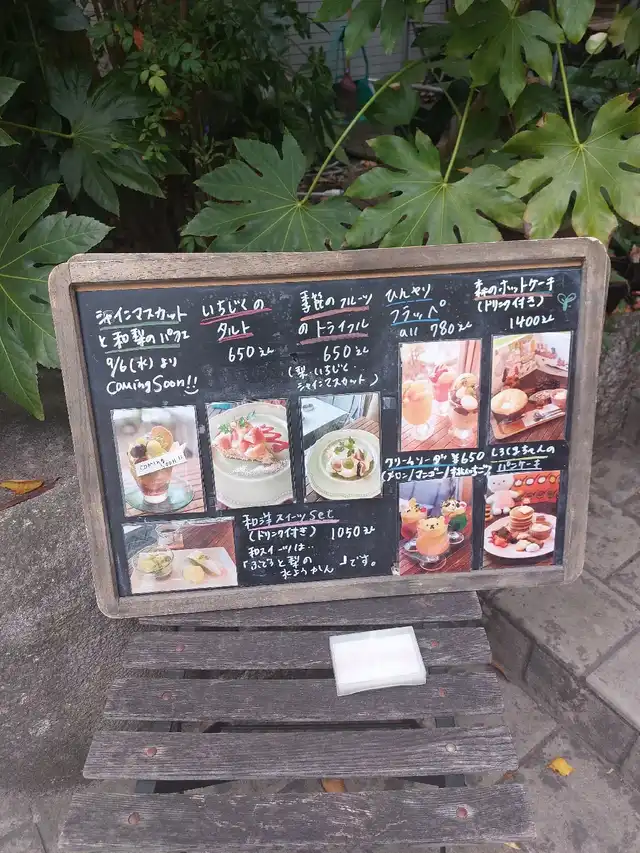 シャインマスカット
と和梨のパフェ
9/6(水)より
Coming Soon!!
いちじくの
タルト
650えん
季節のフルーツ
のトライフル
650えん
(梨・いちじく・
シャインマスカット)
ひんやり
フラッペ
all 780えん
森のホットケーキ
(ドリンク付き)
1400えん
coming
soon!!
クリームソーダ ¥650
(メロン/マンゴー/
しろくまちゃんの
パンケーキ
和洋スイーツSet
(ドリンク付き) 1050えん
和スイーツは‥
「ぶどうと梨の
水ようかん」です。